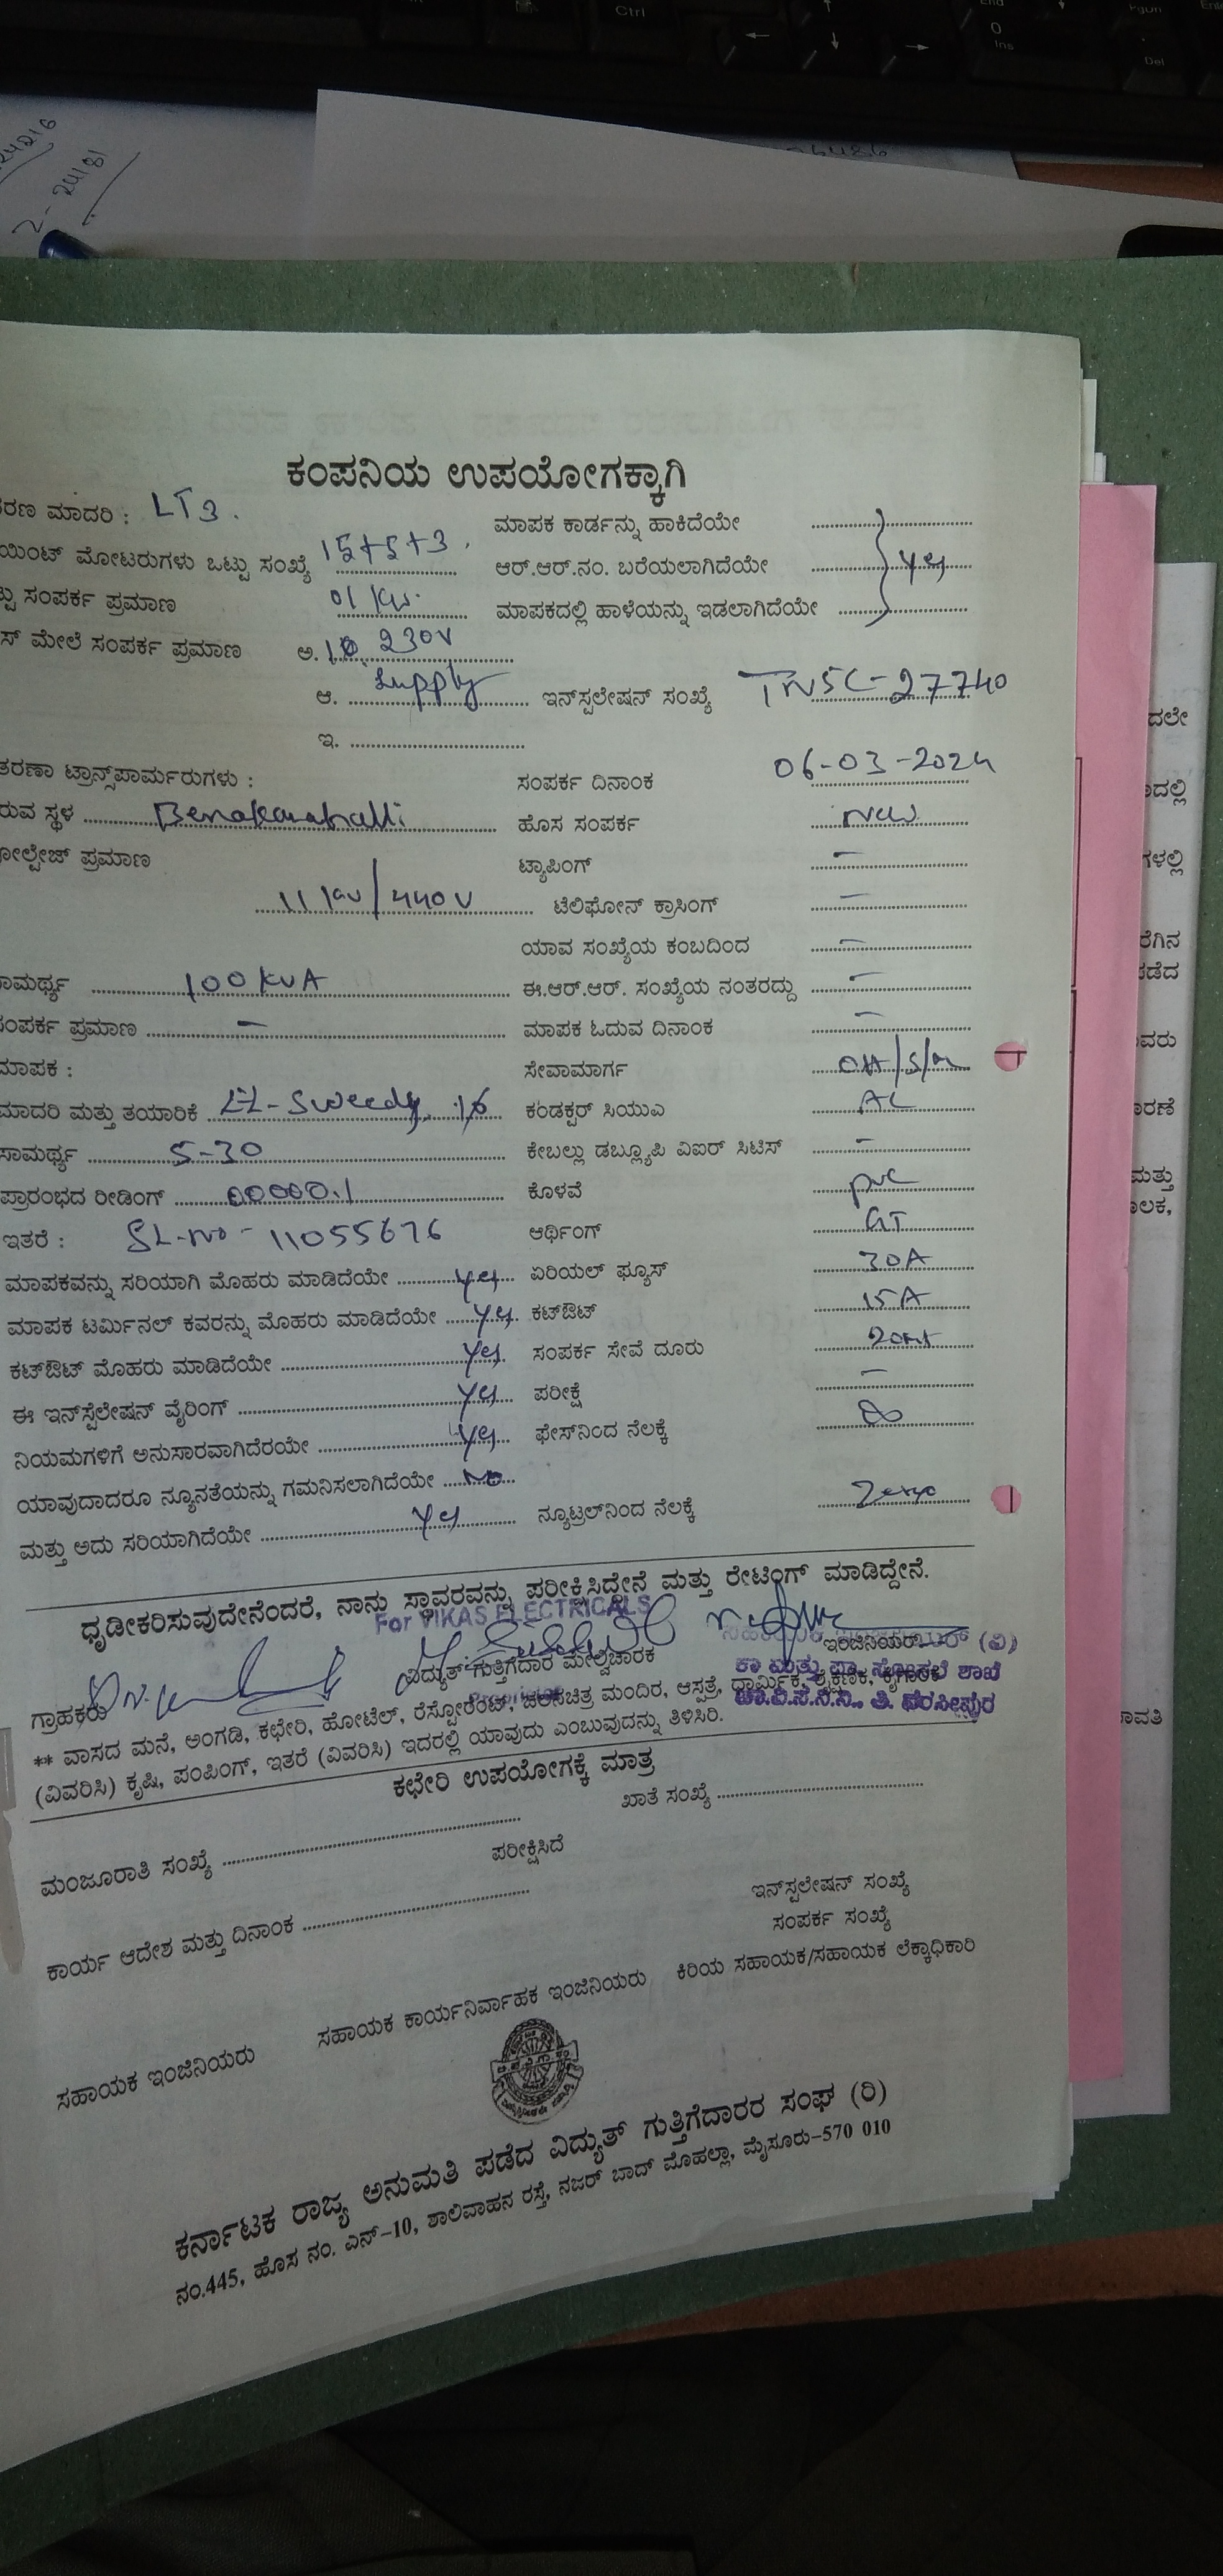 Ctrl
End
0
Ins
Pgun
Del
24216
2-24181
ಕಂಪನಿಯ ಉಪಯೋಗಕ್ಕಾಗಿ
ರಣ ಮಾದರಿ : LT3. ಮಾಪಕ ಕಾರ್ಡನ್ನು ಹಾಕಿದೆಯೇ
ಯಿಂಟ್ ಮೋಟರುಗಳು ಒಟ್ಟು ಸಂಖ್ಯೆ 15+5+3. ಆರ್.ಆರ್.ನಂ. ಬರೆಯಲಾಗಿದೆಯೇ yes
ಟ್ಟು ಸಂಪರ್ಕ ಪ್ರಮಾಣ 01 Kw. ಮಾಪಕದಲ್ಲಿ ಹಾಳೆಯನ್ನು ಇಡಲಾಗಿದೆಯೇ
ಸ್ ಮೇಲೆ ಸಂಪರ್ಕ ಪ್ರಮಾಣ ಅ. 1Φ, 230V
ಆ. Supply ಇನ್‌ಸ್ಟಲೇಷನ್ ಸಂಖ್ಯೆ TNSC-27740
ಇ.
ತರಣಾ ಟ್ರಾನ್ಸ್‌ಪಾರ್ಮರುಗಳು : ಸಂಪರ್ಕ ದಿನಾಂಕ 06-03-2024
ರುವ ಸ್ಥಳ Benakanahalli ಹೊಸ ಸಂಪರ್ಕ New
ೋಲ್ಟೇಜ್ ಪ್ರಮಾಣ ಟ್ಯಾಪಿಂಗ್ –
11 kv/440V ಟೆಲಿಫೋನ್ ಕ್ರಾಸಿಂಗ್ –
ಯಾವ ಸಂಖ್ಯೆಯ ಕಂಬದಿಂದ –
ಾಮರ್ಥ್ಯ 100 KVA ಈ.ಆರ್.ಆರ್. ಸಂಖ್ಯೆಯ ನಂತರದ್ದು –
ಸಂಪರ್ಕ ಪ್ರಮಾಣ – ಮಾಪಕ ಓದುವ ದಿನಾಂಕ –
ಮಾಪಕ : ಸೇವಾಮಾರ್ಗ OH/S/M
ಮಾದರಿ ಮತ್ತು ತಯಾರಿಕೆ ಕಂಡಕ್ಟರ್ ಸಿಯುಎ AL
ಸಾಮರ್ಥ್ಯ 5-30 ಕೇಬಲ್ಲು ಡಬ್ಲ್ಯೂಪಿ ವಿಐರ್ ಸಿಟಿಸ್ –
ಪ್ರಾರಂಭದ ರೀಡಿಂಗ್ 00000.1 ಕೊಳವೆ pvc
ಇತರೆ : SL-no - 11055676 ಆರ್ಥಿಂಗ್ GI
ಮಾಪಕವನ್ನು ಸರಿಯಾಗಿ ಮೊಹರು ಮಾಡಿದೆಯೇ yes ಏರಿಯಲ್ ಫ್ಯೂಸ್ 30A
ಮಾಪಕ ಟರ್ಮಿನಲ್ ಕವರನ್ನು ಮೊಹರು ಮಾಡಿದೆಯೇ yes ಕಟ್‌ಔಟ್ 15A
ಕಟ್‌ಔಟ್ ಮೊಹರು ಮಾಡಿದೆಯೇ yes ಸಂಪರ್ಕ ಸೇವೆ ದೂರು 20mt
ಈ ಇನ್‌ಸ್ಟೆಲೇಷನ್ ವೈರಿಂಗ್ yes ಪರೀಕ್ಷೆ –
ನಿಯಮಗಳಿಗೆ ಅನುಸಾರವಾಗಿದೆರಯೇ yes ಫೇಸ್‌ನಿಂದ ನೆಲಕ್ಕೆ ∞
ಯಾವುದಾದರೂ ನ್ಯೂನತೆಯನ್ನು ಗಮನಿಸಲಾಗಿದೆಯೇ No
ಮತ್ತು ಅದು ಸರಿಯಾಗಿದೆಯೇ yes ನ್ಯೂಟ್ರಲ್‌ನಿಂದ ನೆಲಕ್ಕೆ Zero
ಧೃಡೀಕರಿಸುವುದೇನೆಂದರೆ, ನಾನು ಸ್ಥಾವರವನ್ನು ಪರೀಕ್ಷಿಸಿದ್ದೇನೆ ಮತ್ತು ರೇಟಿಂಗ್ ಮಾಡಿದ್ದೇನೆ.
For VIKAS ELECTRICALS
ಗ್ರಾಹಕರು ವಿದ್ಯುತ್ ಗುತ್ತಿಗೆದಾರ ಮೇಲ್ವಿಚಾರಕ ಇಂಜಿನಿಯರ್
ಶಾಖೆ
ತಿ. ನರಸೀಪುರ
** ವಾಸದ ಮನೆ, ಅಂಗಡಿ, ಕಛೇರಿ, ಹೋಟೆಲ್, ರೆಸ್ಟೋರೆಂಟ್, ಚಲನಚಿತ್ರ ಮಂದಿರ, ಆಸ್ಪತ್ರೆ, ಧಾರ್ಮಿಕ, ಶೈಕ್ಷಣಿಕ, ಕೈಗಾರಿಕೆ
(ವಿವರಿಸಿ) ಕೃಷಿ, ಪಂಪಿಂಗ್, ಇತರೆ (ವಿವರಿಸಿ) ಇದರಲ್ಲಿ ಯಾವುದು ಎಂಬುವುದನ್ನು ತಿಳಿಸಿರಿ.
ಕಛೇರಿ ಉಪಯೋಗಕ್ಕೆ ಮಾತ್ರ
ಮಂಜೂರಾತಿ ಸಂಖ್ಯೆ ಖಾತೆ ಸಂಖ್ಯೆ
ಪರೀಕ್ಷಿಸಿದೆ
ಕಾರ್ಯ ಆದೇಶ ಮತ್ತು ದಿನಾಂಕ ಇನ್‌ಸ್ಟಲೇಷನ್ ಸಂಖ್ಯೆ
ಸಂಪರ್ಕ ಸಂಖ್ಯೆ
ಸಹಾಯಕ ಇಂಜಿನಿಯರು ಸಹಾಯಕ ಕಾರ್ಯನಿರ್ವಾಹಕ ಇಂಜಿನಿಯರು ಕಿರಿಯ ಸಹಾಯಕ/ಸಹಾಯಕ ಲೆಕ್ಕಾಧಿಕಾರಿ
ಕರ್ನಾಟಕ ರಾಜ್ಯ ಅನುಮತಿ ಪಡೆದ ವಿದ್ಯುತ್ ಗುತ್ತಿಗೆದಾರರ ಸಂಘ (ರಿ)
ನಂ.445, ಹೊಸ ನಂ. ಎನ್-10, ಶಾಲಿವಾಹನ ರಸ್ತೆ, ನಜರ್ ಬಾದ್ ಮೊಹಲ್ಲಾ, ಮೈಸೂರು-570 010